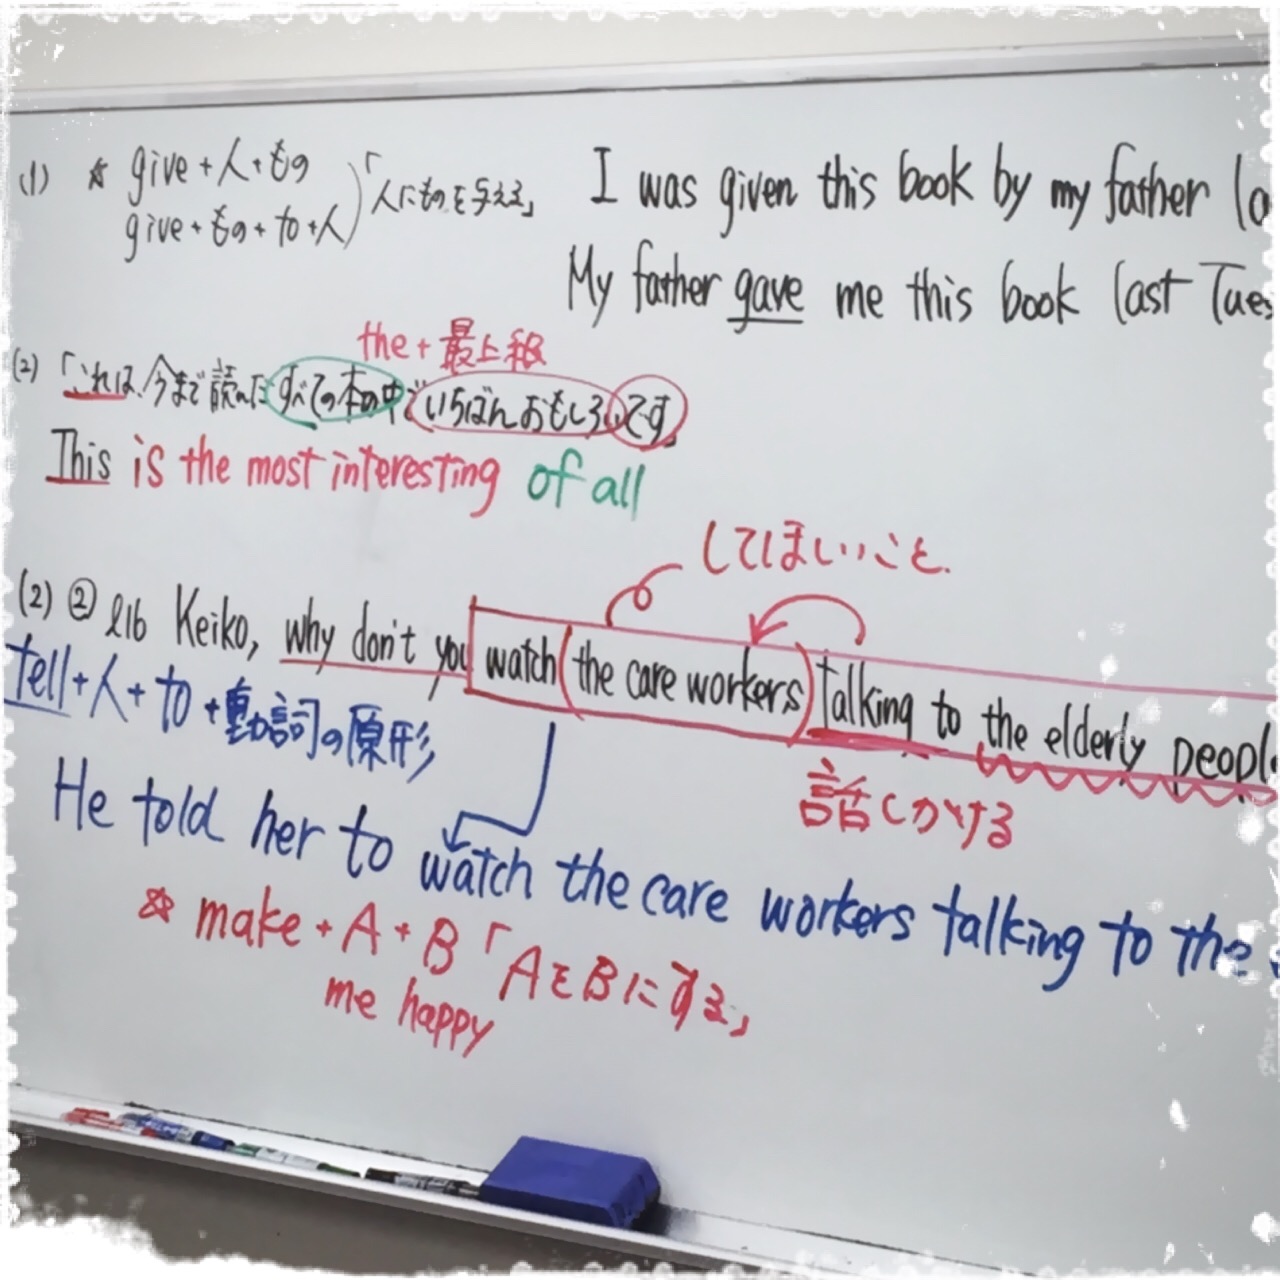 (1) ☆ give + 人 + もの
give + もの + to + 人
「人にものを与える」
I was given this book by my father
My father gave me this book last Tues
the + 最上級
(2) 「これは今まで読んだすべての本の中でいちばんおもしろいです」
This is the most interesting of all
してほしいこと.
(2) ② l16 Keiko, why don't you watch (the care workers) talking to the elderly people
話しかける
tell + 人 + to + 動詞の原形
He told her to watch the care workers talking to the
☆ make + A + B 「AをBにする」
me happy